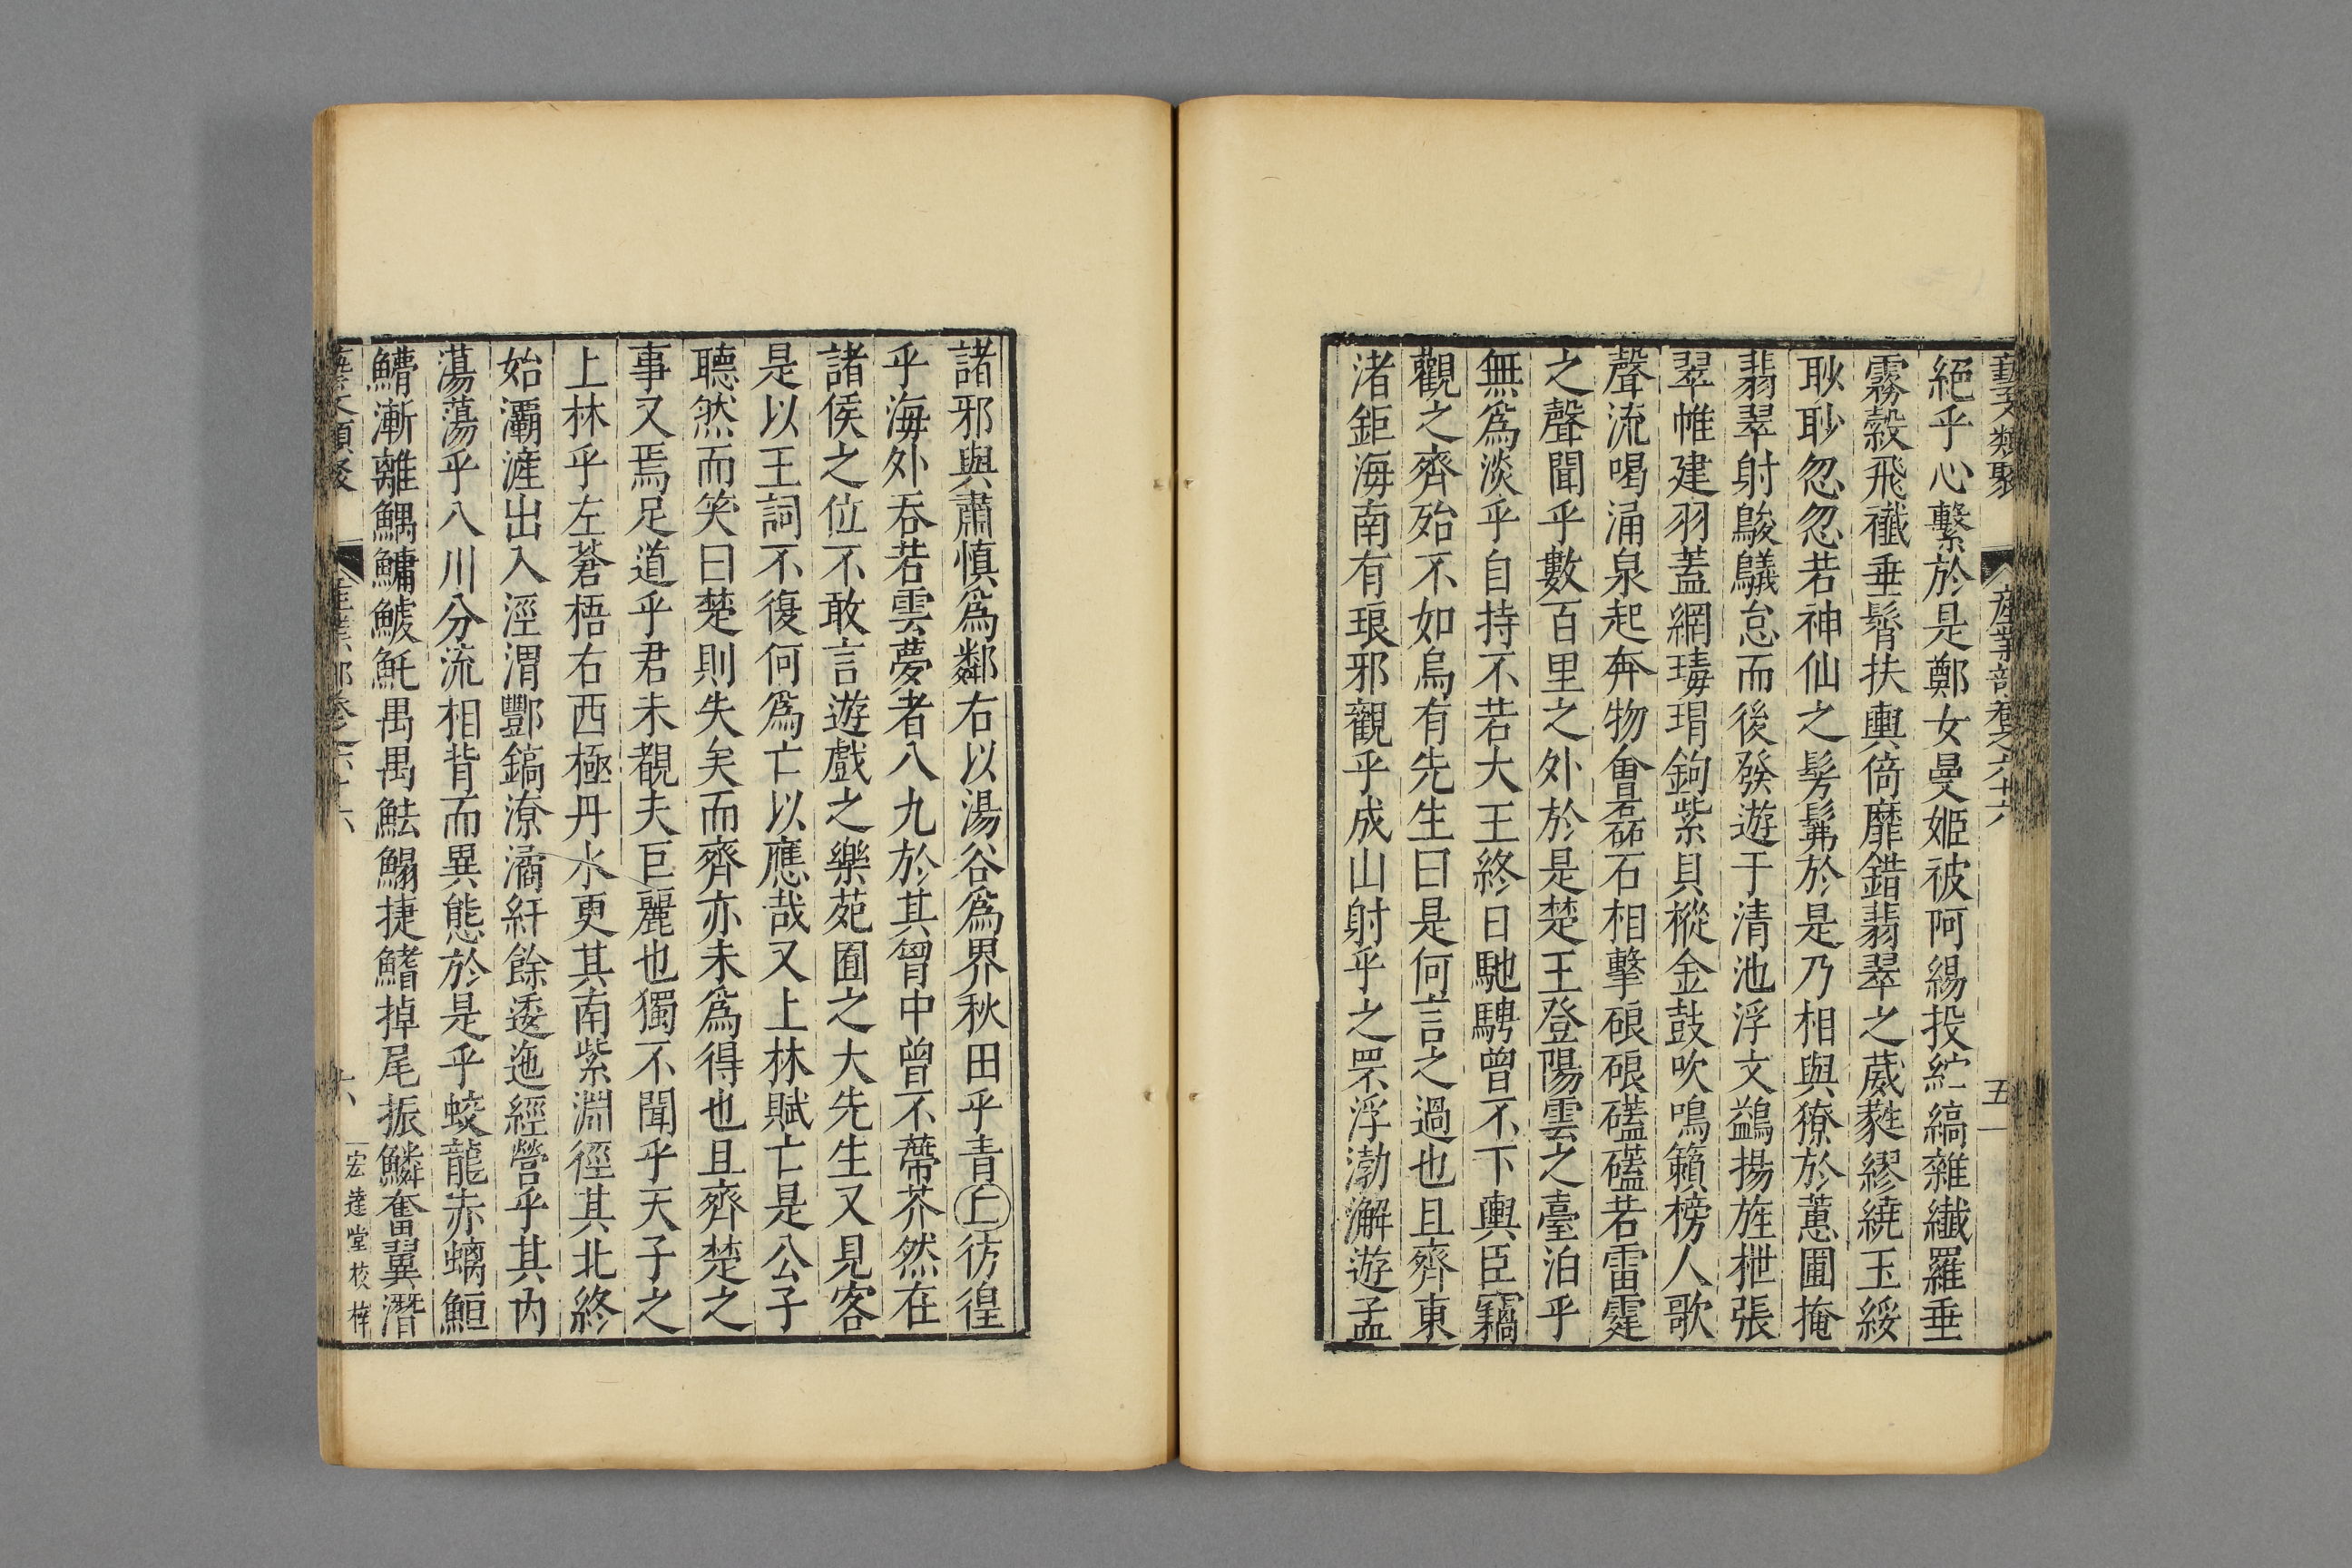 藝文類聚 産業部卷之六十六 五
絕乎心繫於是鄭女曼姬被阿緆投紵縞雜纖羅垂
霧縠飛襳垂髾扶輿倚靡錯翡翠之葳蕤繆繞玉綏
耿眇忽忽若神仙之髣髴於是乃相與獠於蕙圃掩
翡翠射鵔鸃怠而後發遊于清池浮文鷁揚旌枻張
翠帷建羽蓋網瑇瑁鉤紫貝樅金鼓吹鳴籟榜人歌
聲流喝涌泉起奔物會礧石相擊硠硠礚礚若雷霆
之聲聞乎數百里之外於是楚王登陽雲之臺泊乎
無爲淡乎自持不若大王終日馳騁曾不下輿臣竊
觀之齊殆不如烏有先生曰是何言之過也且齊東
渚鉅海南有琅邪觀乎成山射乎之罘浮渤澥遊孟
諸邪與肅慎爲鄰右以湯谷爲界秋田乎青丘彷徨
乎海外吞若雲夢者八九於其胷中曾不蔕芥然在
諸侯之位不敢言遊戲之樂苑囿之大先生又見客
是以王詞不復何爲亡以應哉又上林賦亡是公子
聽然而笑曰楚則失矣而齊亦未爲得也且齊楚之
事又焉足道乎君未覩夫巨麗也獨不聞乎天子之
上林乎左蒼梧右西極丹水更其南紫淵徑其北終
始灞滻出入涇渭酆鎬潦潏紆餘逶迤經營乎其內
蕩蕩乎八川分流相背而異態於是乎蛟龍赤螭䱎
䲛漸離鰅鱅鰬魠禺禺魼鰨揵鰭掉尾振鱗奮翼潛
藝文類聚 産業部卷之六十六 六 宏達堂校梓